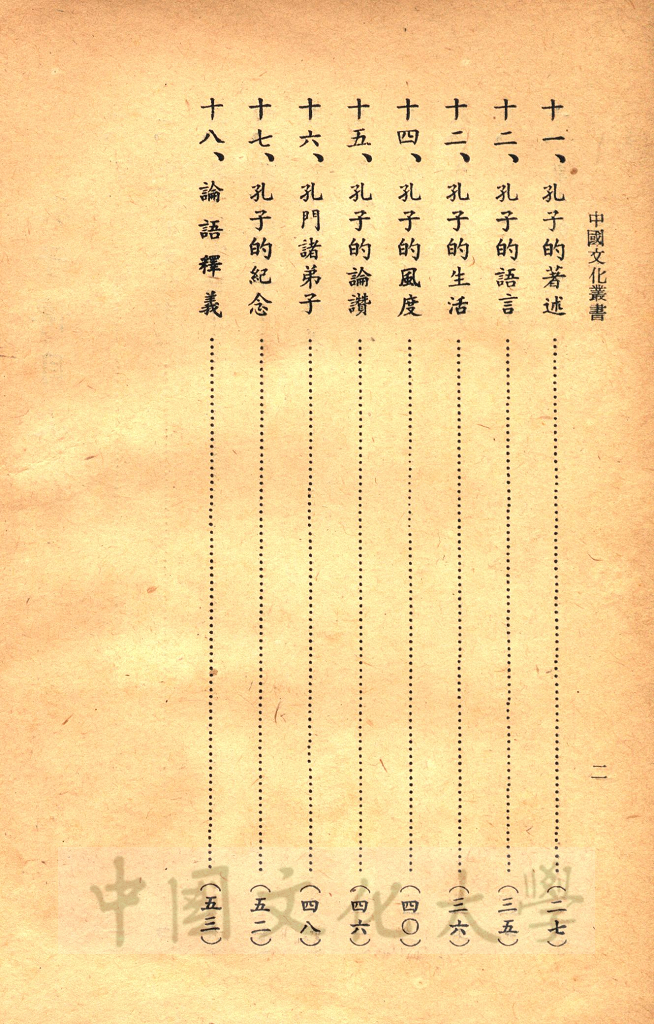 中國文化叢書
二
十一、孔子的著述………(二七)
十二、孔子的語言………(三五)
十二、孔子的生活………(三六)
十四、孔子的風度………(四〇)
十五、孔子的論讚………(四六)
十六、孔門諸弟子………(四八)
十七、孔子的紀念………(五二)
十八、論語釋義………(五三)
中國文化大學